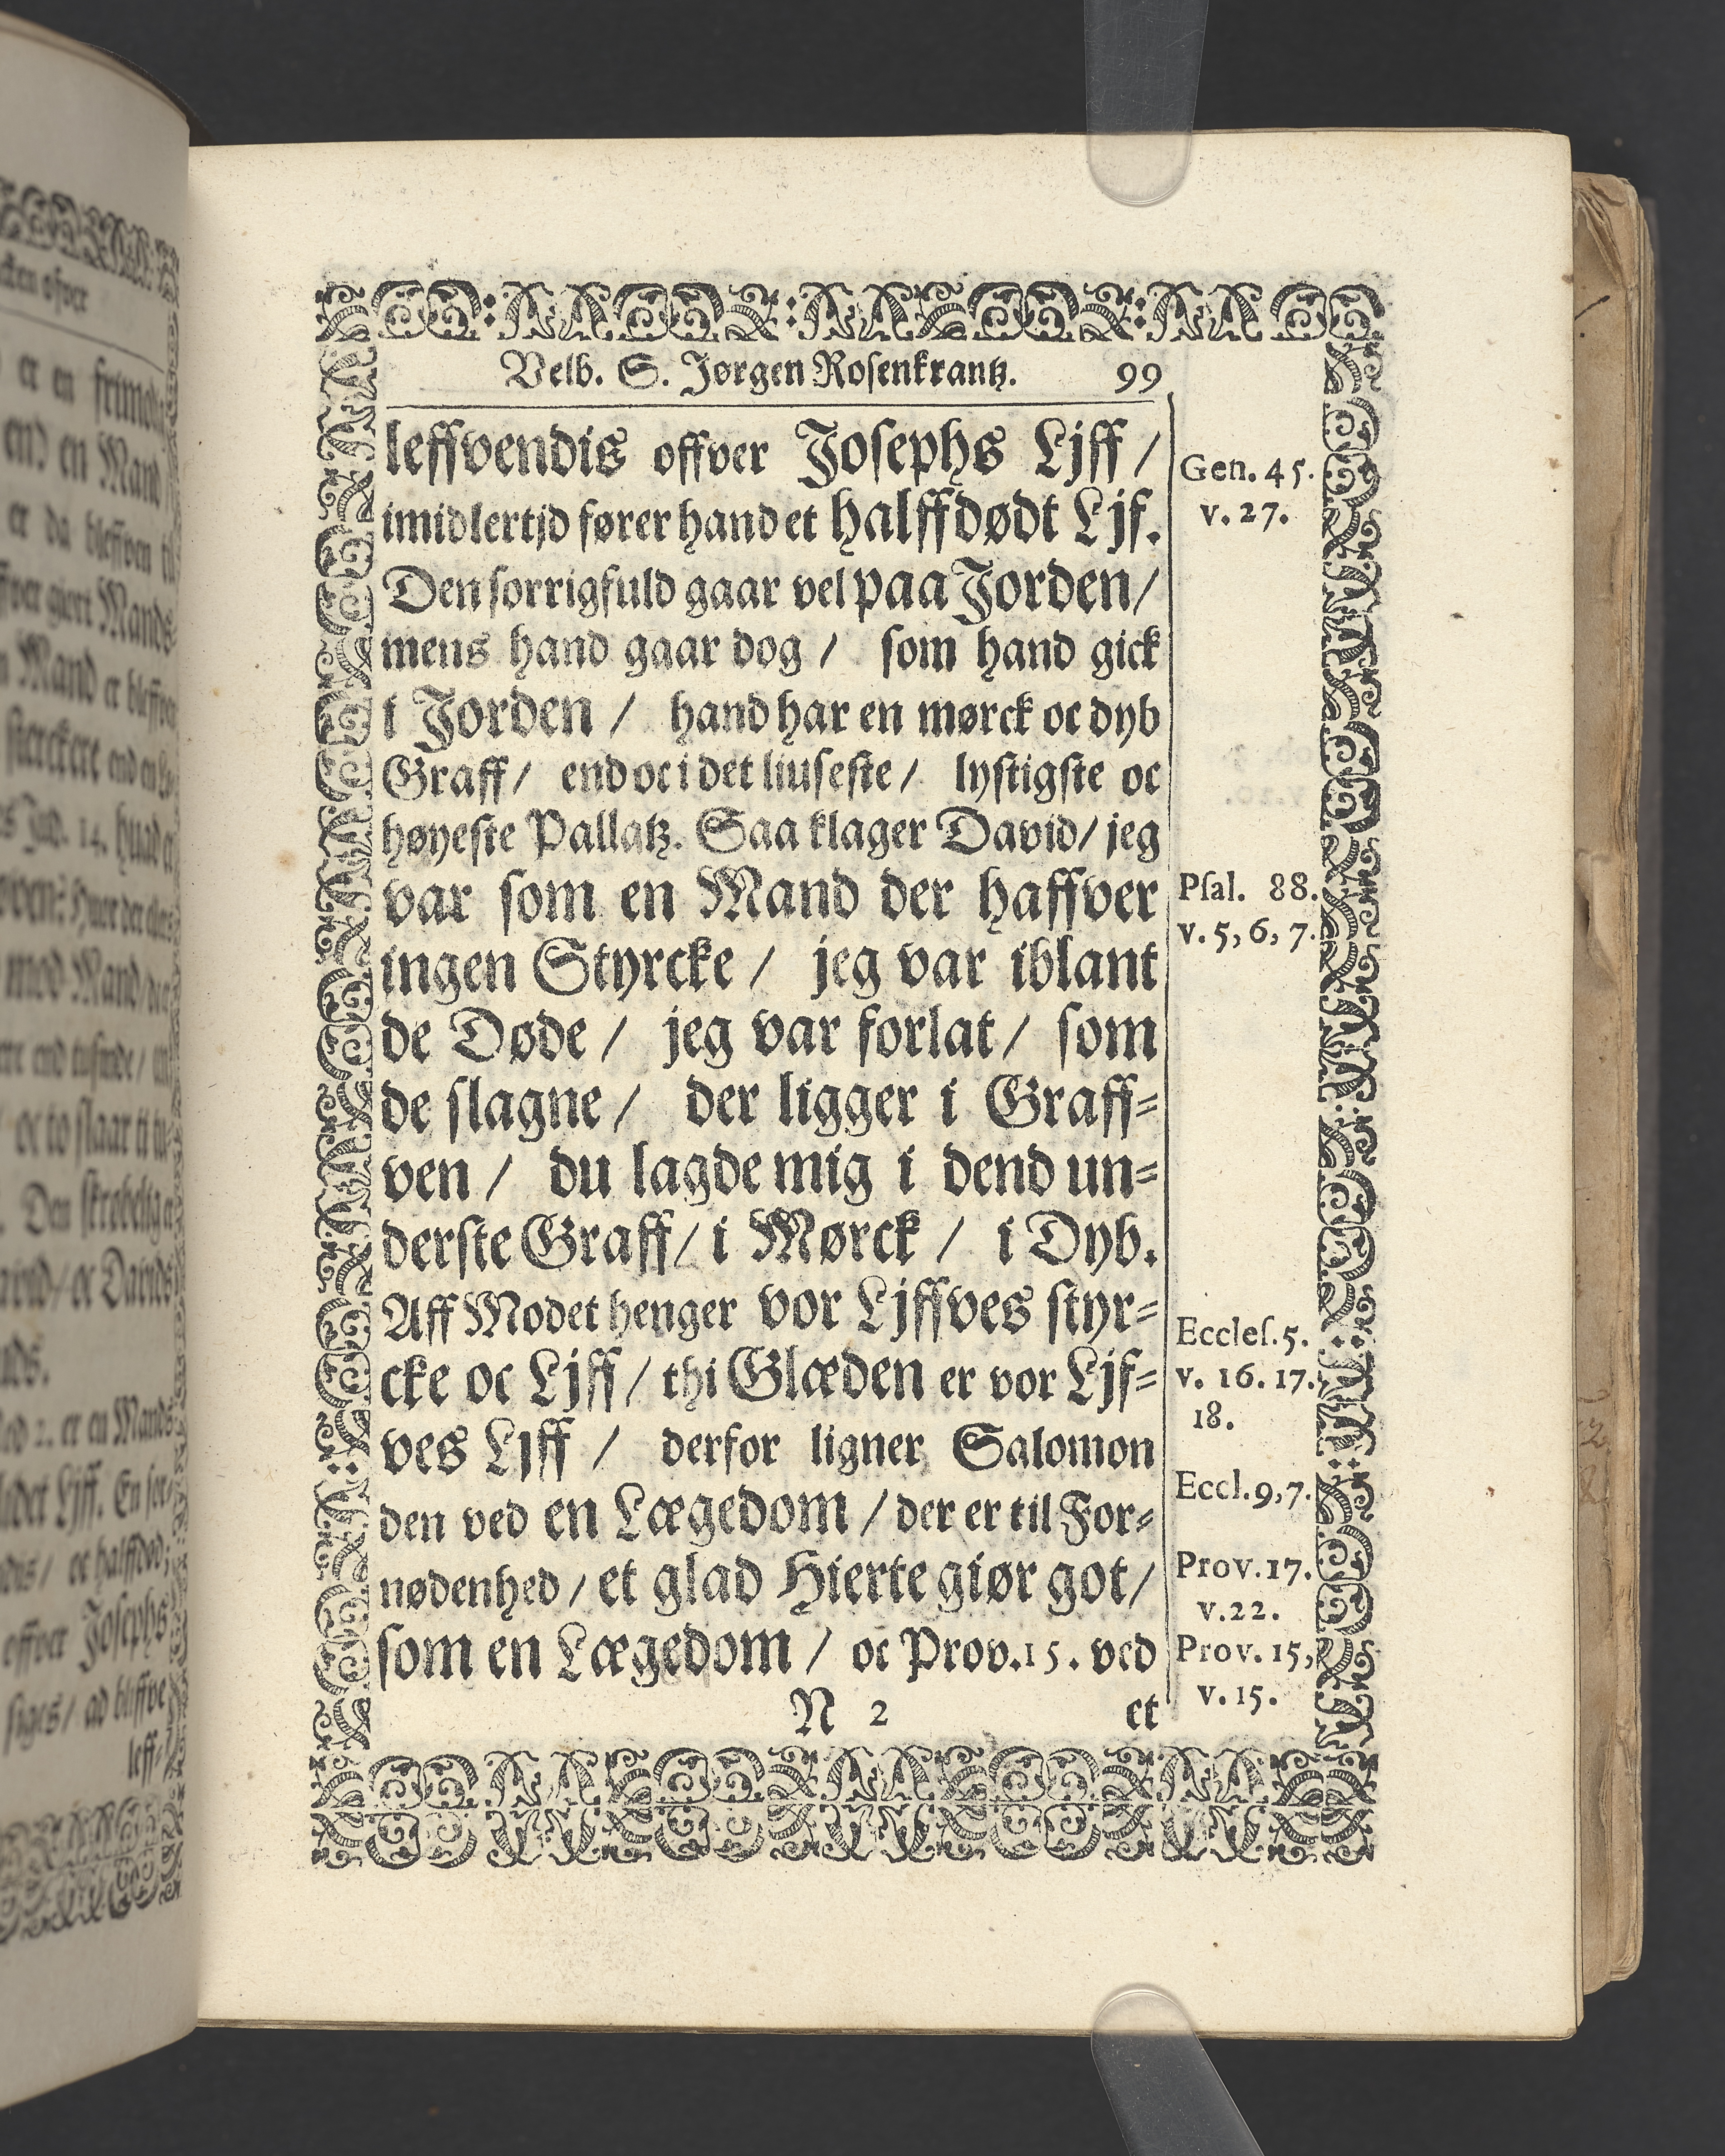 Velb. S. Jørgen Rosenkrantz. 99
leffvendis offver Josephs Ljff /
imidlertjd fører hand et halffdødt Ljf.
Den sorrigfuld gaar vel paa Jorden /
mens hand gaar dog / som hand gick
i Jorden / hand har en mørck oc dyb
Graff / end oc i det liuseste / lystigste oc
høyeste Pallatz. Saa klager David / jeg
var som en Mand der haffver
ingen Styrcke / jeg var iblant
de Døde / jeg var forlat / som
de slagne / der ligger i Graff=
ven / du lagde mig i dend un=
derste Graff / i Mørck / i Dyb.
Aff Modet henger vor Ljffves styr=
cke oc Ljff / thi Glæden er vor Ljf=
ves Ljff / derfor ligner Salomon
den ved en Lægedom / der er til For=
nødenhed / et glad Hierte giør got /
som en Lægedom / oc Prov. 15. ved
N 2 et
Gen. 45.
v. 27.
Psal. 88.
v. 5, 6, 7.
Eccles. 5.
v. 16. 17.
18.
Eccl. 9, 7.
Prov. 17.
v. 22.
Prov. 15,
v. 15.